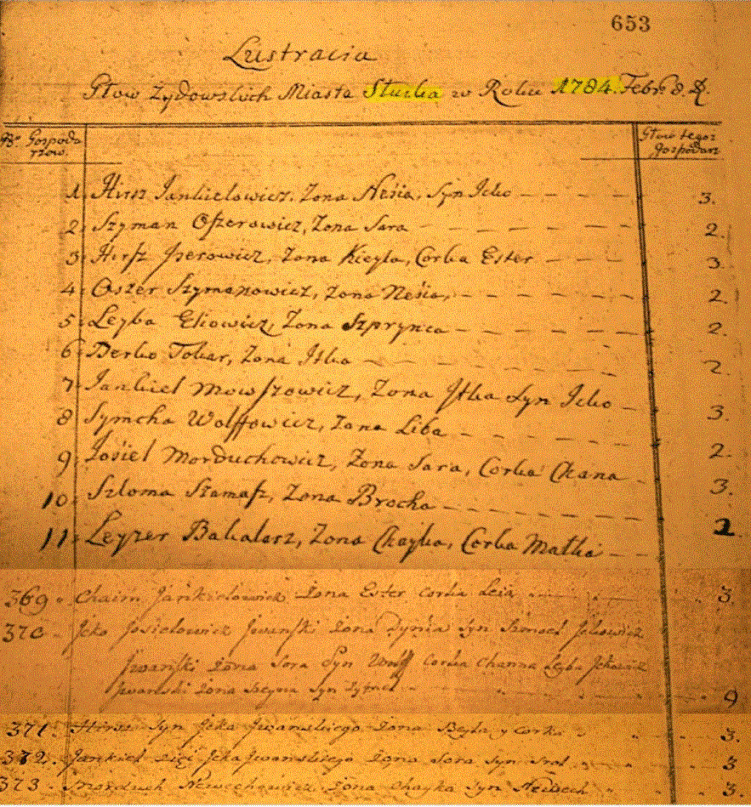 653
Lustracia
Głow Żydowskich Miasta Słucka w Roku 1784. Febr. 8. D.
Gospoda
rzow.
Głow tegoż
Gospodarz
1. Hirsz Jankielowicz, Zona Nesia, Syn Icko 3.
2. Szyman Oszerowicz, Zona Sara 2.
3. Hirsz Iserowicz, Zona Kieyla, Corka Ester 3.
4. Oszer Szymanowicz, Zona Nesia, 2.
5. Leyba Eliowicz, Zona Szprynca 2.
6. Berko Tokar, Zona Itka 2.
7. Jankiel Mowszowicz, Zona Itka Syn Icko 3.
8. Symcha Wolffowicz, Zona Liba 2.
9. Josiel Morduchowicz, Zona Sara, Corka Chana 3.
10. Szloma Szamasz, Zona Brocha 2.
11. Leyzer Bakalarz, Zona Chayka, Corka Matka
369. Chaim Jankielowicz Zona Ester Corka Leia 3.
370. Icko Josielowicz Iwanski Zona Dynia Syn Ickowicz
Iwanski Zona Sora Syn Wolff Corka Channa Leyba Ickowicz
Iwanski Zona Syn 9
371. Hirsz Syn Icka Iwanskiego Zona Beyla y corka 3.
372. Jankiel Zięć Icka Iwanskiego Zona Sora Syn Srol 3
373. Morduch Zona Chayka Syn 3.